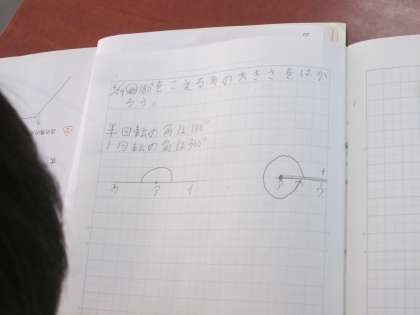 180°をこえる角の大きさをはか
ろう。
半回転の角は180°
1回転の角は360°
ウ ア イ
ア イ
ウ